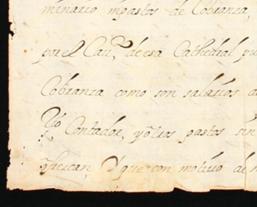 minario mpastos de Cobranza,
por el Cau.º de esa Cathedral pu
Cobranza como son salarios d
Yo Contador, y otros gastos sin
que con motivo de